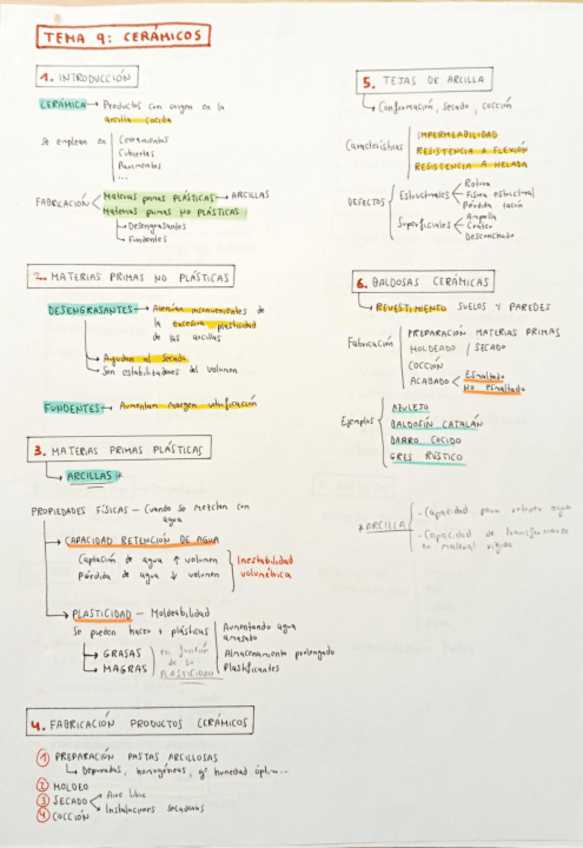 TEMA 9: CERÁMICOS
1. INTRODUCCIÓN
CERÁMICA → Productos con origen en la
arcilla cocida
Se emplean en
Cerramientos
Cubiertas
Pavimentos
...
FABRICACIÓN
Materias primas PLÁSTICAS → ARCILLAS
Materias primas NO PLÁSTICAS
Desengrasantes
Fundentes
2. MATERIAS PRIMAS NO PLÁSTICAS
DESENGRASANTES → Atenúan inconvenientes de
la excesiva plasticidad
de las arcillas
Ayudan al secado
Son estabilizadores del volumen
FUNDENTES → Aumentan margen vitrificación
3. MATERIAS PRIMAS PLÁSTICAS
ARCILLAS *
PROPIEDADES FÍSICAS - Cuando se mezclan con
agua
CAPACIDAD RETENCIÓN DE AGUA
Captación de agua ↑ volumen
Pérdida de agua ↓ volumen
Inestabilidad
volumétrica
PLASTICIDAD - Moldeabilidad
Se pueden hacer + plásticas
Aumentando agua
amasado
Almacenamiento prolongado
Plastificantes
GRASAS
MAGRAS
en función
de su
PLASTICIDAD
4. FABRICACIÓN PRODUCTOS CERÁMICOS
1 PREPARACIÓN PASTAS ARCILLOSAS
Depuradas, homogéneas, gº humedad óptim...
2 MOLDEO
3 SECADO
Aire libre
Instalaciones secaderos
4 COCCIÓN
5. TEJAS DE ARCILLA
Conformación, secado, cocción
Características
IMPERMEABILIDAD
RESISTENCIA A FLEXIÓN
RESISTENCIA A HELADA
DEFECTOS
Estructurales
Rotura
Fisura estructural
Pérdida tacón
Superficiales
Ampolla
Cráter
Desconchado
6. BALDOSAS CERÁMICAS
REVESTIMIENTO SUELOS Y PAREDES
Fabricación
PREPARACIÓN MATERIAS PRIMAS
MOLDEADO / SECADO
COCCIÓN
ACABADO
Esmaltado
No esmaltado
Ejemplos
AZULEJO
BALDOSÍN CATALÁN
BARRO COCIDO
GRES RÚSTICO
* ARCILLA
- Capacidad para retener agua
- Capacidad de transformarse
en material rígido